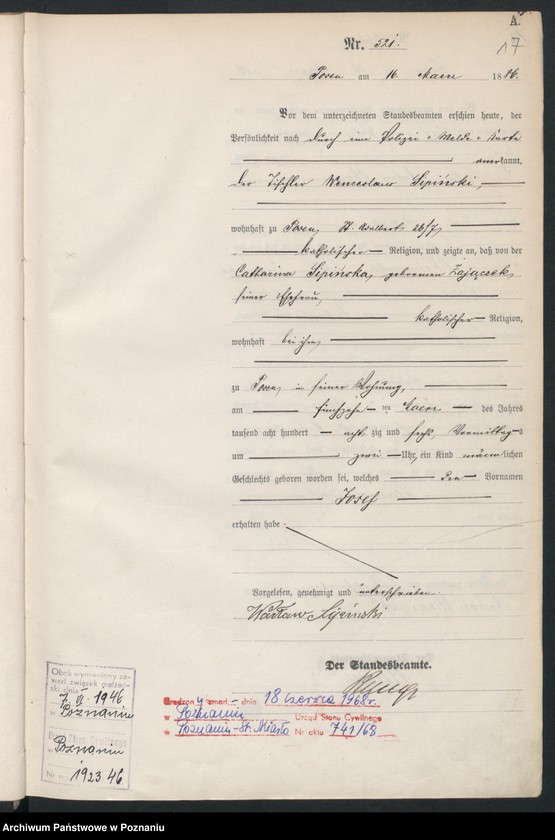 A.
17
Nr. 521.
Posen am 16. Maerz 1886.
Vor dem unterzeichneten Standesbeamten erschien heute, der
Persönlichkeit nach durch eine Polizei-Melde-Karte
anerkannt,
der Tischler Wenceslaus Lipiński,
wohnhaft zu Posen, St. Adalbert 26/7,
katholischer Religion, und zeigte an, daß von der
Catharina Lipińska, geborenen Zajączek,
seiner Ehefrau,
katholischer Religion,
wohnhaft bei ihm,
zu Posen, in seiner Wohnung,
am fünfzehn ten Maerz des Jahres
tausend acht hundert acht zig und sechs, Vormittags
um zwei Uhr, ein Kind männlichen
Geschlechts geboren worden sei, welches den Vornamen
Josef
erhalten habe.
Vorgelesen, genehmigt und unterschrieben.
Wacław Lipinski
Der Standesbeamte.
Obok wymieniony za-
warł związek małżeń-
ski dnia
7. VI. 1946
w Poznaniu
Urząd Stanu Cywilnego
w Poznaniu
Nr 1923/46
Urodzony zmarł dnia 18 czerwca 1968 r.
w Poznaniu Urząd Stanu Cywilnego
w Poznaniu-St. Miasto Nr aktu 741/68
Archiwum Państwowe w Poznaniu